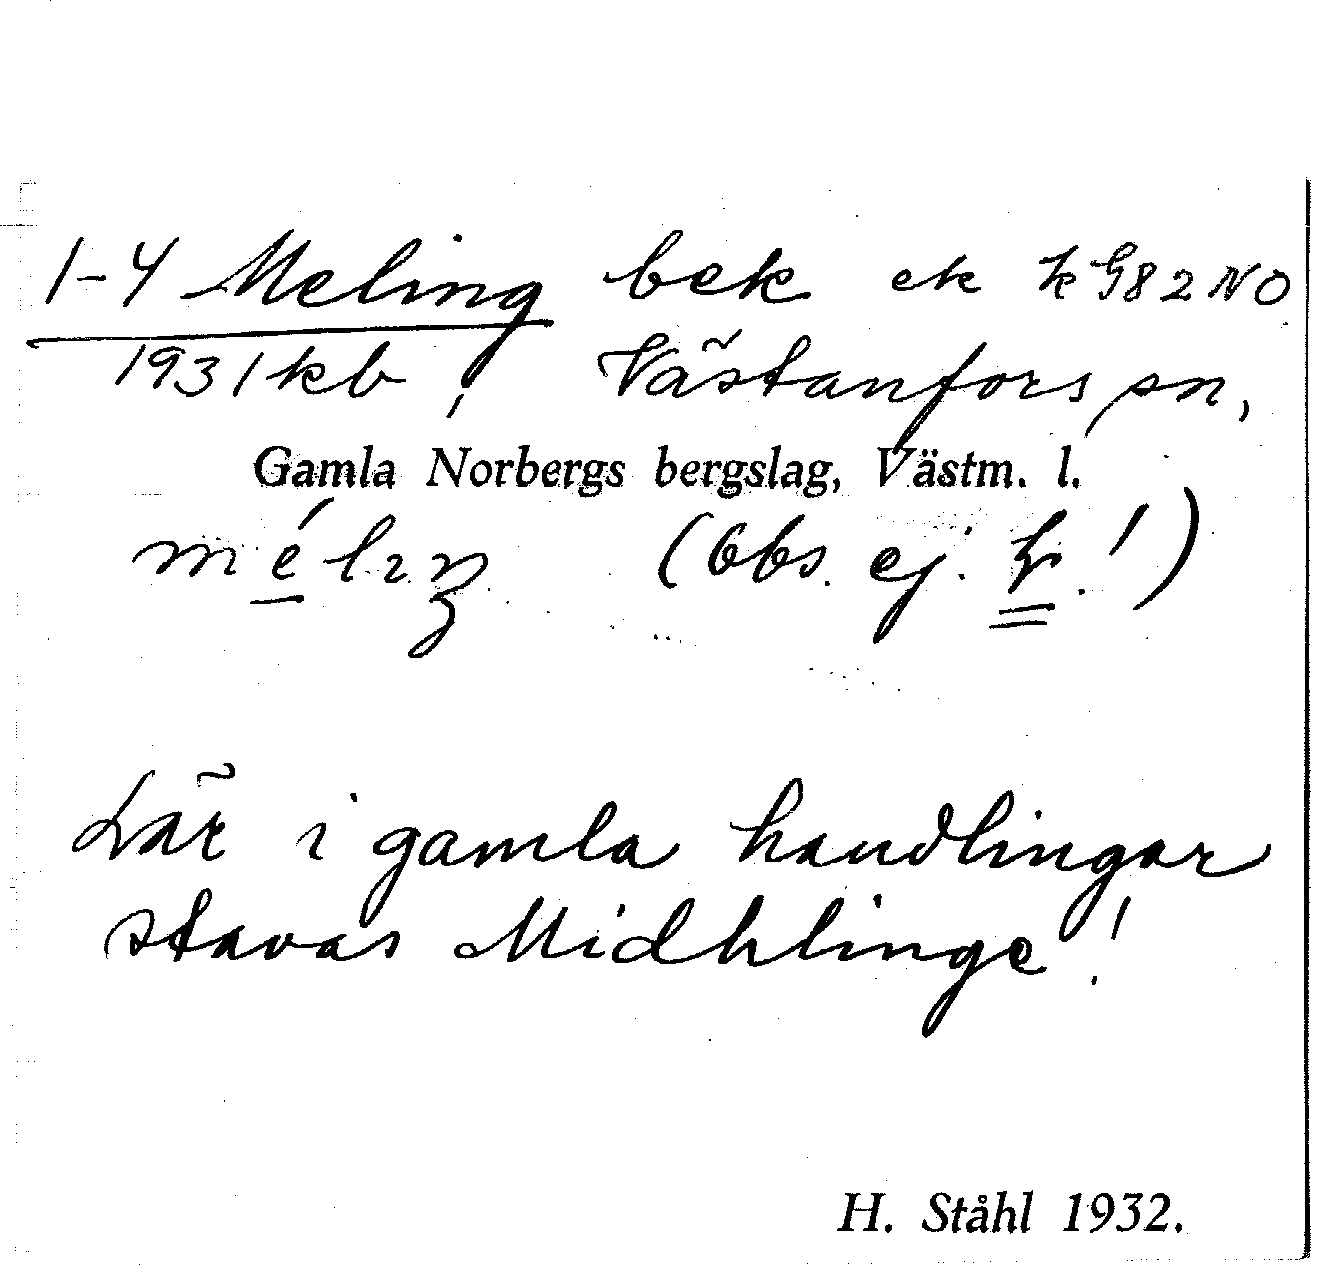 1-4 Meling bek ek k G82 NO
1931 kb, Västanfors sn,
Gamla Norbergs bergslag, Västm. l.
(Obs. ej. !)
Lär i gamla handlingar
stavas Midhlinge!
H. Ståhl 1932.